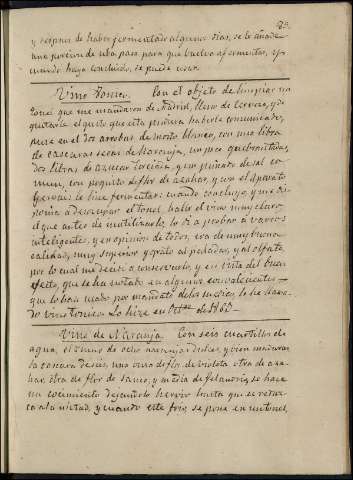 y despues de haber fermentado algunos dias, se le añade
una porcion de uba pasa para que buelva a fermentar, y
cuando haya concluido, se puede usar.
Vino Tonico. Con el objeto de limpiar un
tonel que me mandaron de Madrid, lleno de Cerveza, y de
quitarle el gusto que esta pudiera haberle comunicado,
puse en el dos arrobas de mosto blanco, con una libra
de cascaras secas de Naranja, un poco quebrantadas,
dos libras de azucar terciada, y un puñado de sal co-
mun, un poquito de flor de azahar, y con el aparato
Gervais le hice fermentar: cuando concluyo, y me dis-
ponia a desocupar el tonel, hallé el vino muy claro,
el que antes de inutilizarlo, lo di a probar a varios
inteligentes, y en opinion de todos, era de muy buena
calidad, muy superior y grato al paladar, y al olfato,
por lo cual me decidi a conservarlo, y en vista del buen
efecto, que le ha surtido en algunos convalecientes
que lo han usado por mandato de los medicos, lo he llama-
do vino tonico. Lo hize en
Vino de Naranja. Con seis cuartillos de
agua, el zumo de ocho naranjas dulces, y bien maduras
la cascara de seis, una onza de flor de violeta otra de aza-
har, otra de flor de sauco, y media de se hace
un cocimiento dejandolo hervir hasta que se reduz-
ca a la mitad, y cuando este frio, se pone en un tonel,